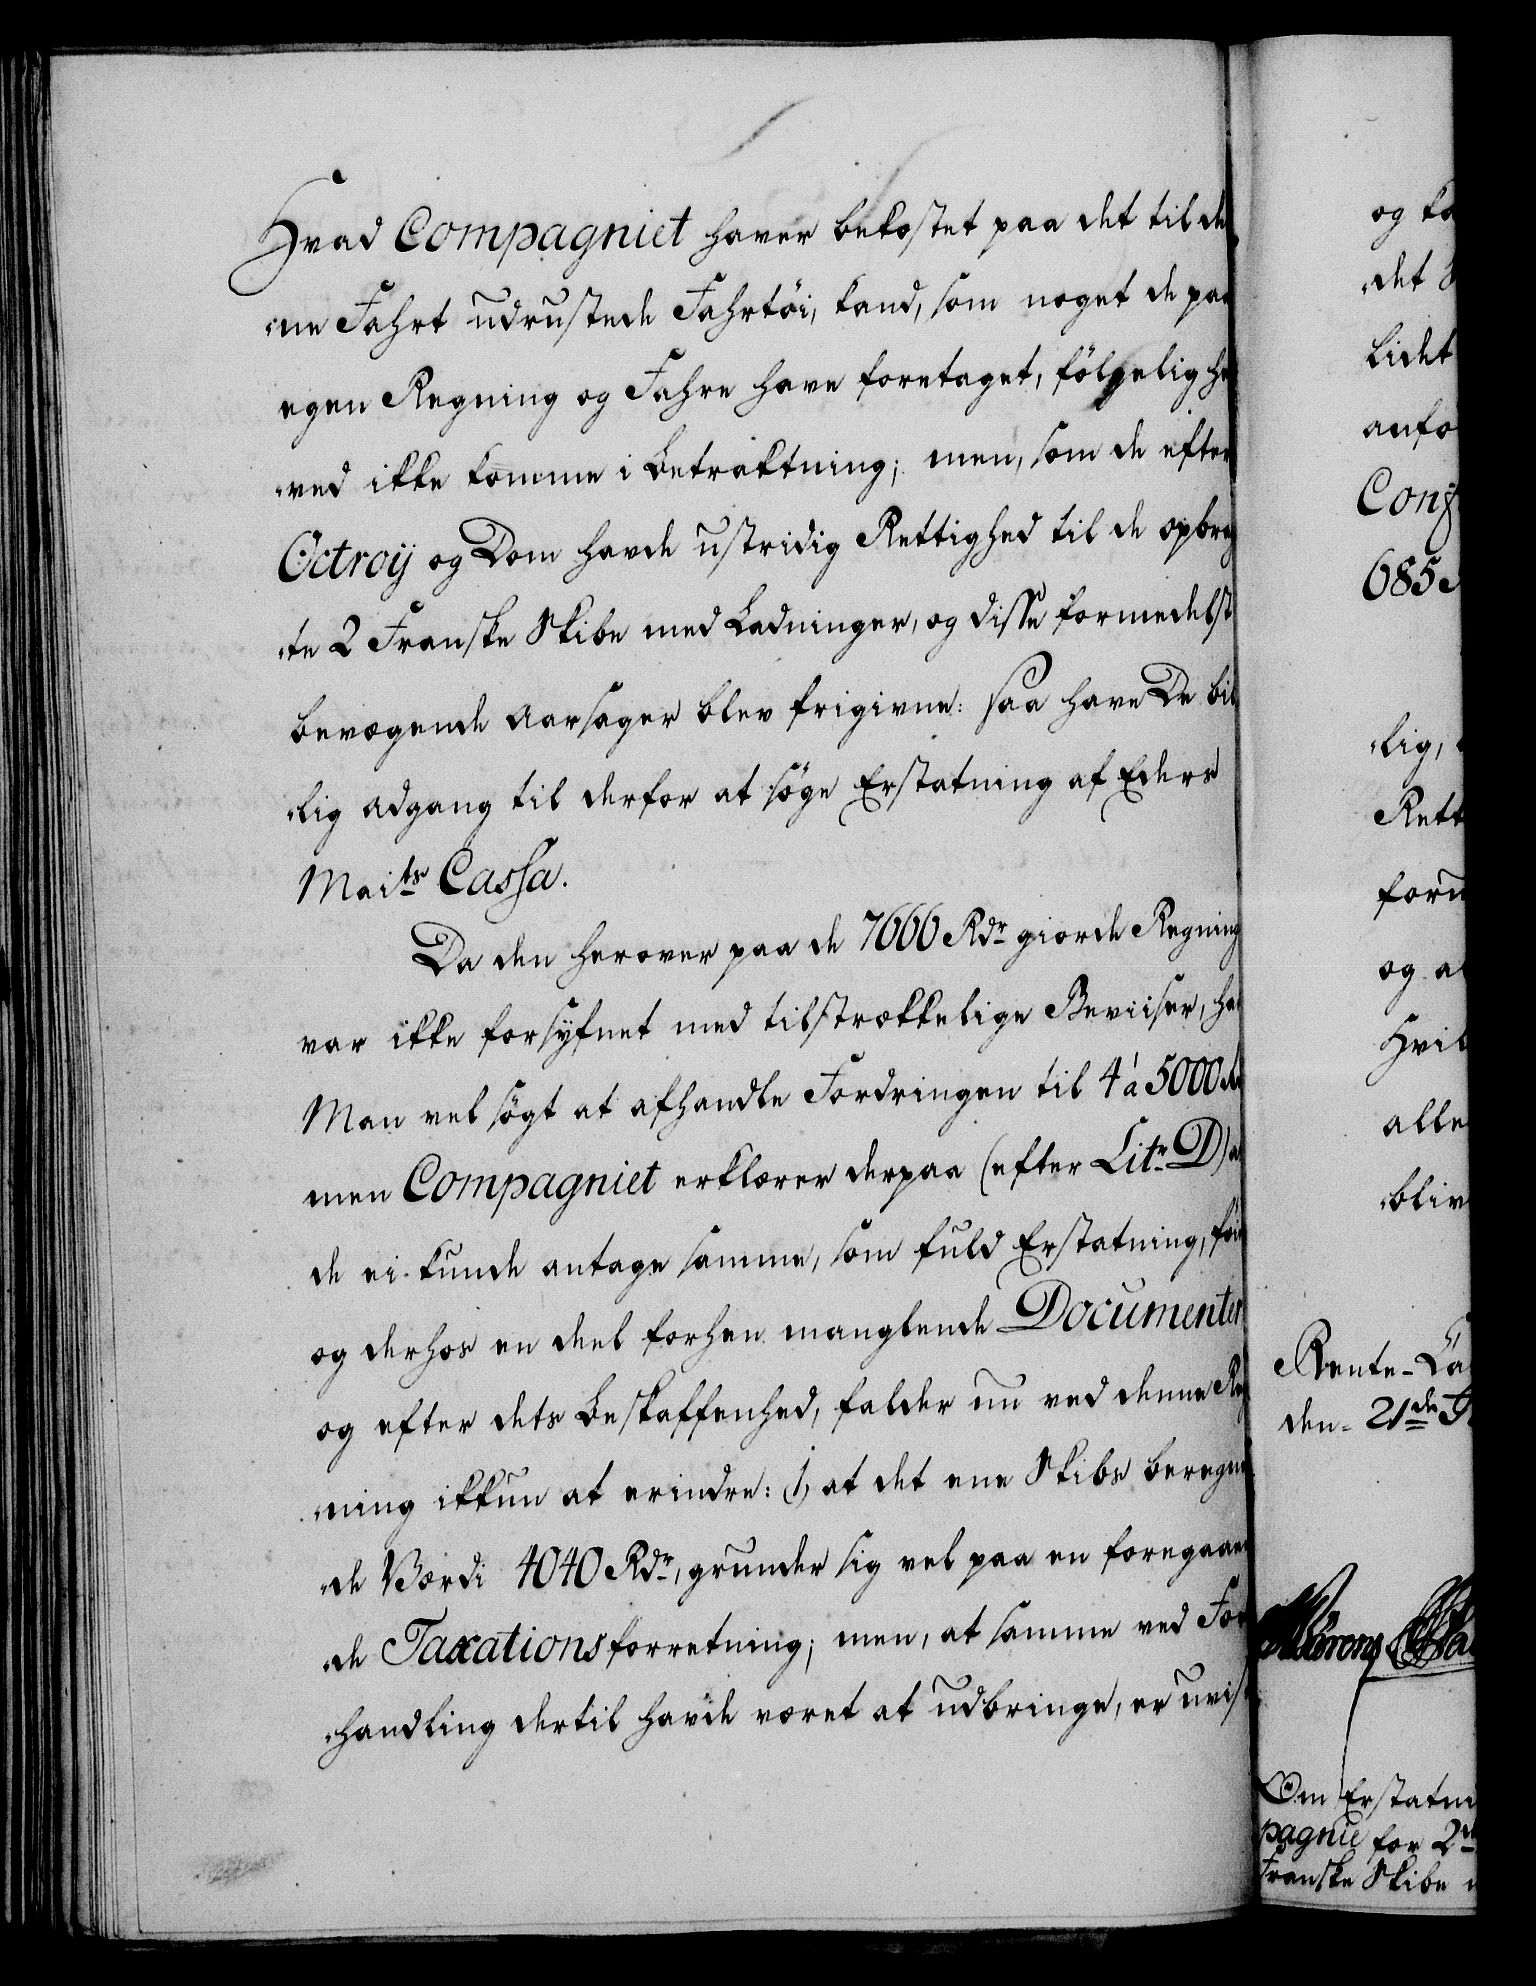 Hvad Compagniet haver bekostet paa det til de
„ne Fahrt udrustede Fahrtöi, kand, som noget de paa
egen Regning og Fahre have foretaget, fölgelig he
„ved ikke komme i betraktning; men, som de efter
Octroij og Dom havde ustridig Rettighed til de opbrag
„te 2 Franske Skibe med Ladninger, og disse formedelst
bevægende Aarsager blev frigivne: saa have De bil
„lig adgang til derfor at söge Erstatning af Eders
Maits Cassa.
Da den herover paa de 7666 Rdr giorde Regning
var ikke forsÿfnet med tilstrækkelige Beviiser, ha
Man vel sögt at afhandle Fordringen til 4 à 5000 R
men Compagniet erklærer derpaa (efter Litr D) a
de ei kunde antage samme, som fuld Erstatning, föi
og derhos en deel forhen manglende Documenter
og efter dets Beskaffenhed, falder nu ved denne Reg
„ning ikkun at erindre: 1, at det ene Skibs beregne
„de Værdi 4040 Rdr, grunder sig vel paa en foregaaen
„de Taxationsforretning; men, at samme ved For
„handling dertil havde været at udbringe, er uvist
og
„det
lidet
anfo
685
„lig,
Rett
og a
Hvil
alle
„bliv
Rente-Ca
den 21de
Om Erstatni
pagnie for 2de
Franske Skibe